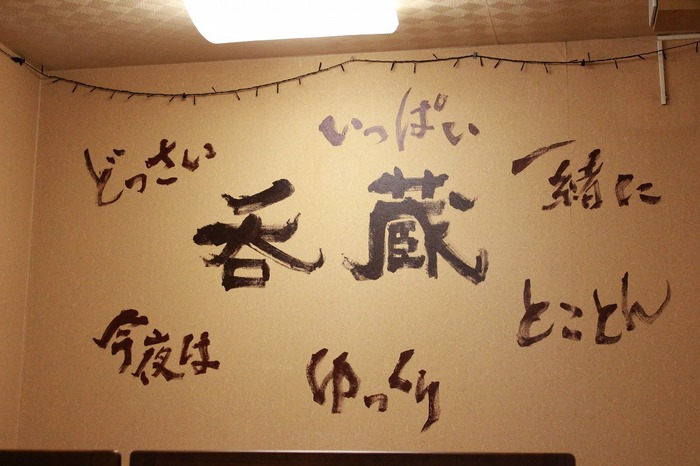 いっぱい
どっさい
一緒に
呑蔵
とことん
今夜は
ゆっくり